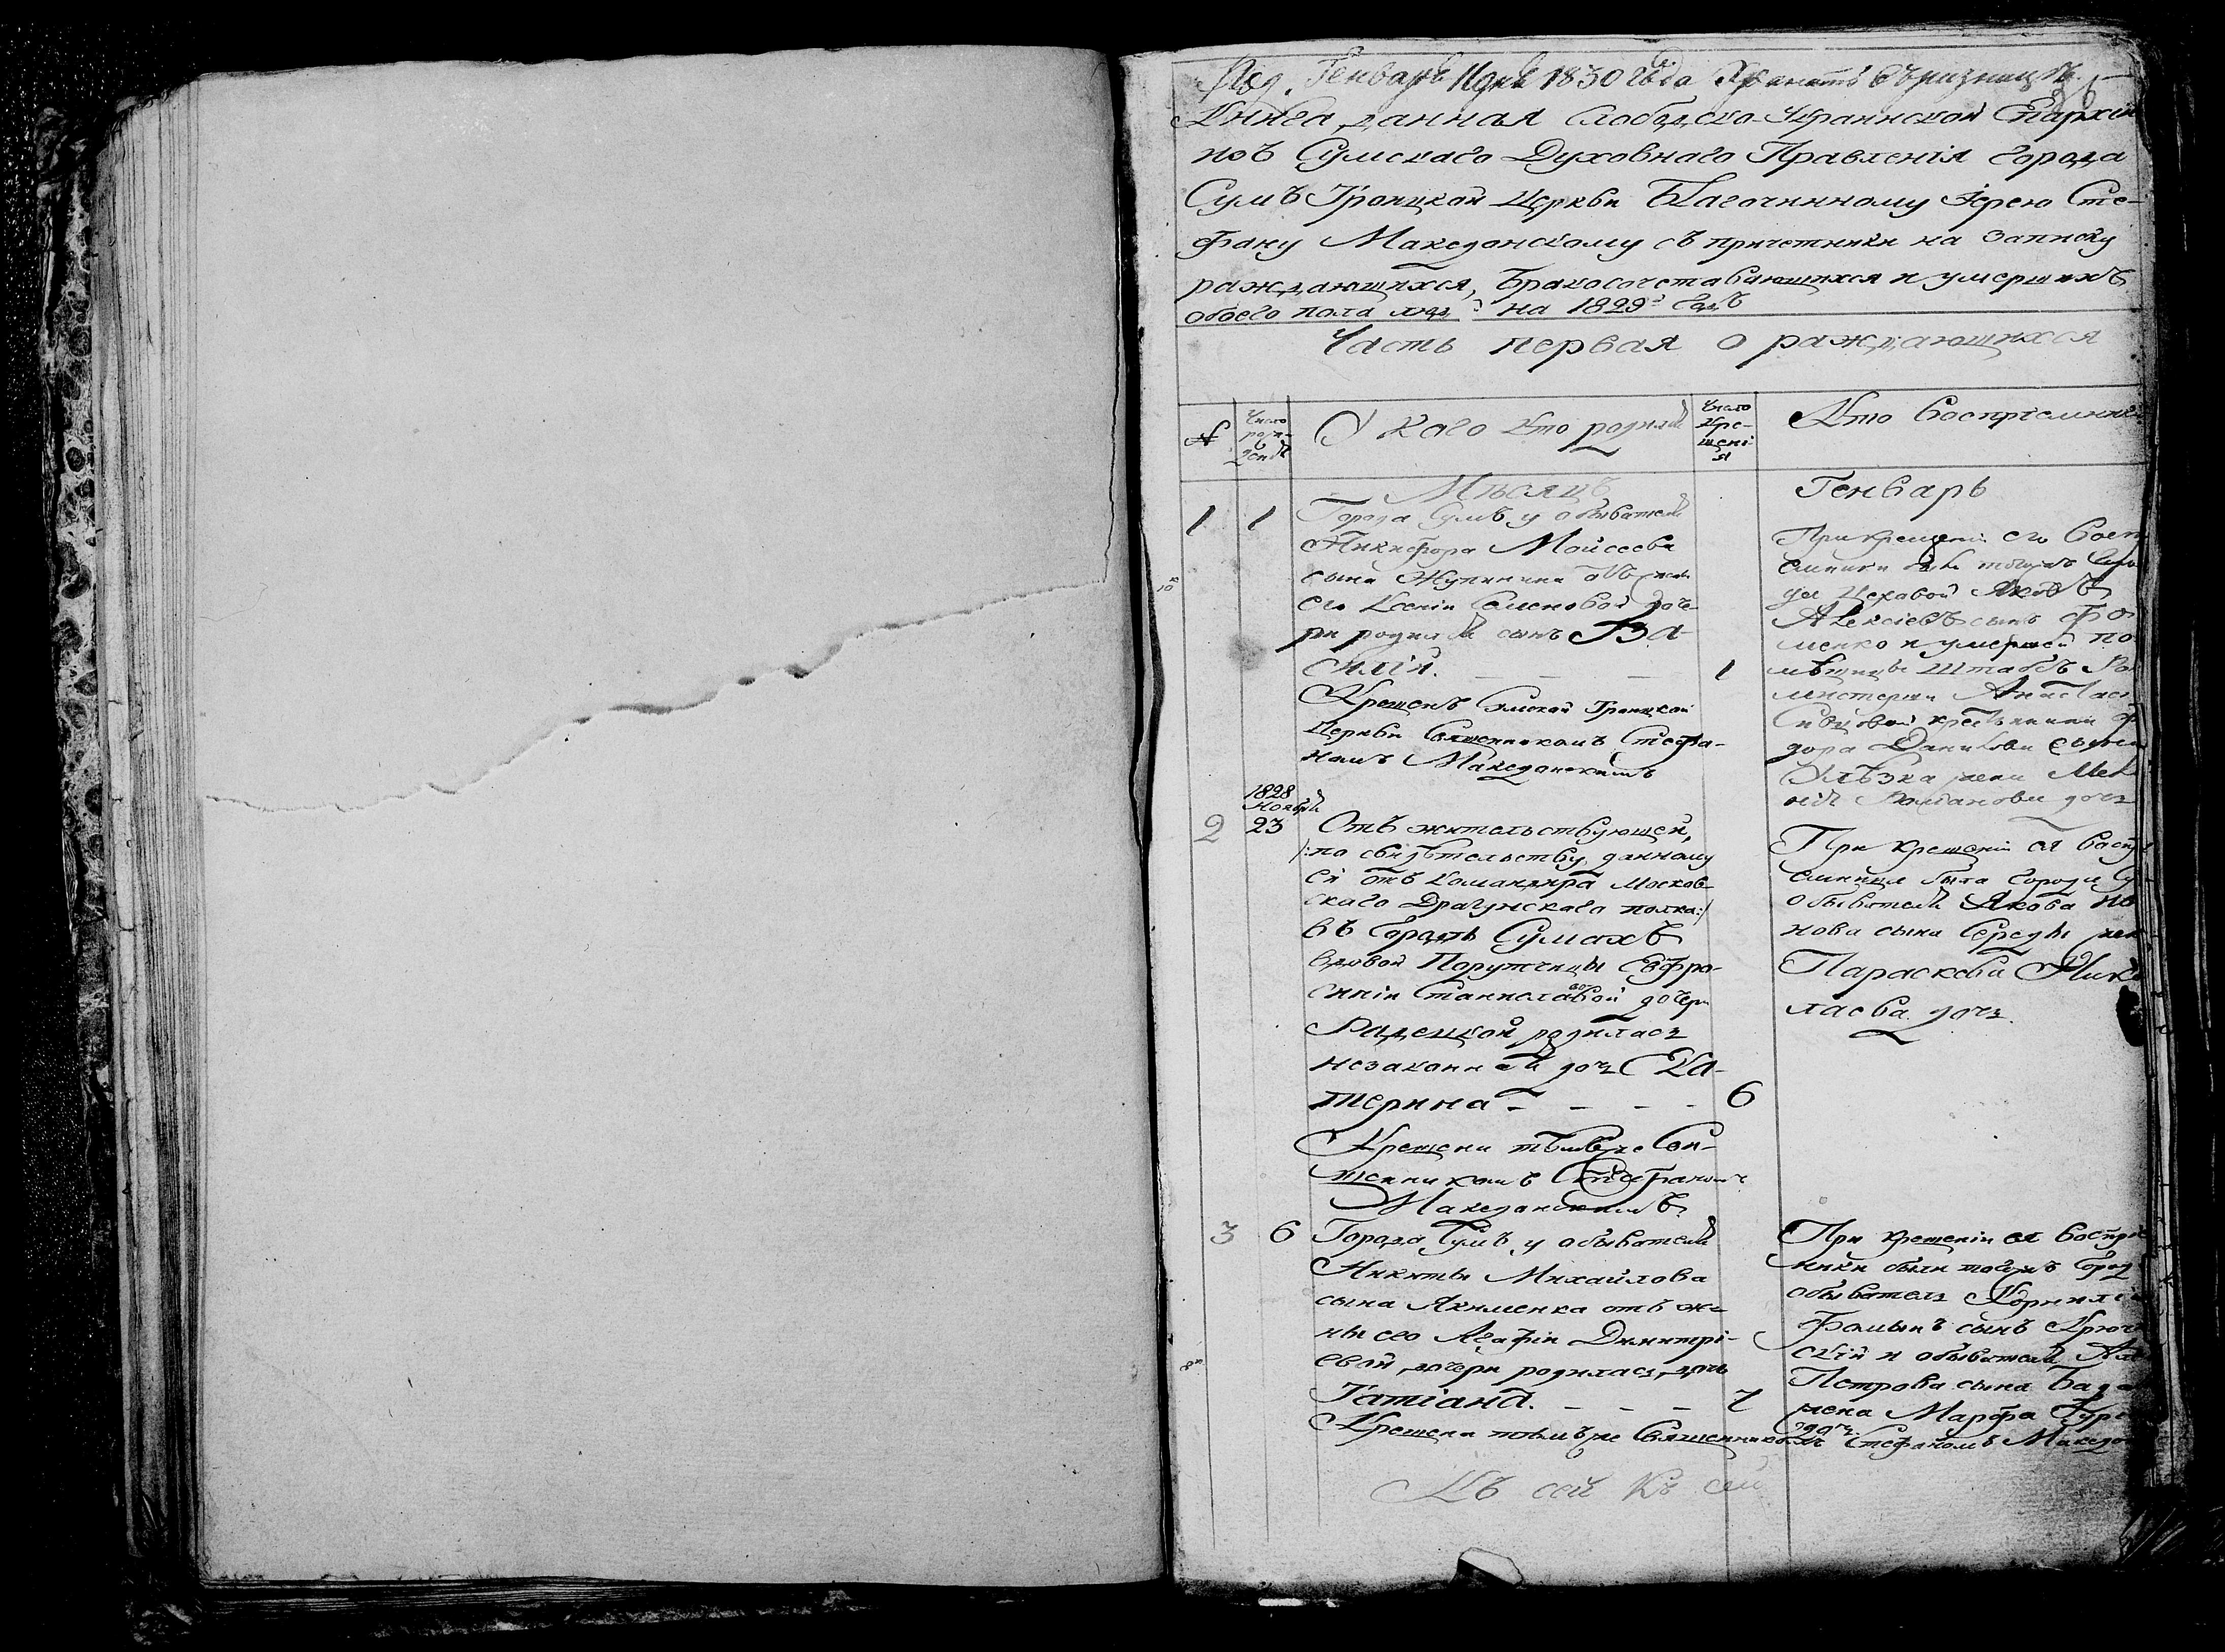 Генваря 11 дня 1830 года Хранить въ ризницѣ
Книга данная Слободско-Украинской Епархіи
изъ Сумскаго Духовнаго Правленія города
Сумъ Троицкой Церкви Благочинному Іерею Сте-
фану Македонскому съ причетники на записку
раждающихся, бракосочетавающихся и умершихъ
обоего пола люд. на 1829й годъ
Часть первая о раждающихся
№
Число
рожд-
Число
Кре-
щені-
я
У Каго Кто родился
Кто Воспріемник
Мѣсяцъ
Генварь
1
1
Города Сумъ у обывателя
Никифора Моисеева
сына отъ жены
его Ксеніи Семеновой доче-
ри родился сынъ Ва-
силій.
1
Крещенъ Сумской Троицкой
Церкви Священникомъ Стефа-
номъ Македонскимъ
При крещеніи его Восп
емники были тогожъ
Цеховой Яковъ
Алексіевъ сынъ Фо-
менко и умершей по-
мѣщицы Штабъ Ро
мистерши Анастас
крестьянина Ѳ
дора Данилова сына
жена Мел
нія Романова дочь
1828
Ноября
2
23
Отъ жительствующей,
/:по свидѣтельству данному
ей отъ Командира Москов-
скаго Драгунскаго полка:/
въ городѣ Сумахъ
вдовой Поручицы Евфро-
синіи Станиславовой дочери
Радецкой родилась
незаконная дочь Ека-
терина
6
Крещена тѣмъ же Свя-
щенникомъ Стефаномъ
Македонскимъ
При крещеніи ея Воспрі
емница была города Су
обывателя Якова Ива
нова сына Середы жен
Параскева Нико
лаева дочь.
3
6
Города Сумъ у обывателя
Никиты Михайлова
сына Якименка отъ же-
ны его Агафіи Димитрі-
евой дочери родилась дочь
Татіана.
7
Крещена тѣмъ же Священникомъ Стефаномъ Македо
При крещеніи ея Воспріе
ники были тогожъ город
обыватель Корнилі
Фоминъ сынъ Крюч
скій и обывателя
Петрова сына
жена Марфа
дочь.
Къ сей Къ сей